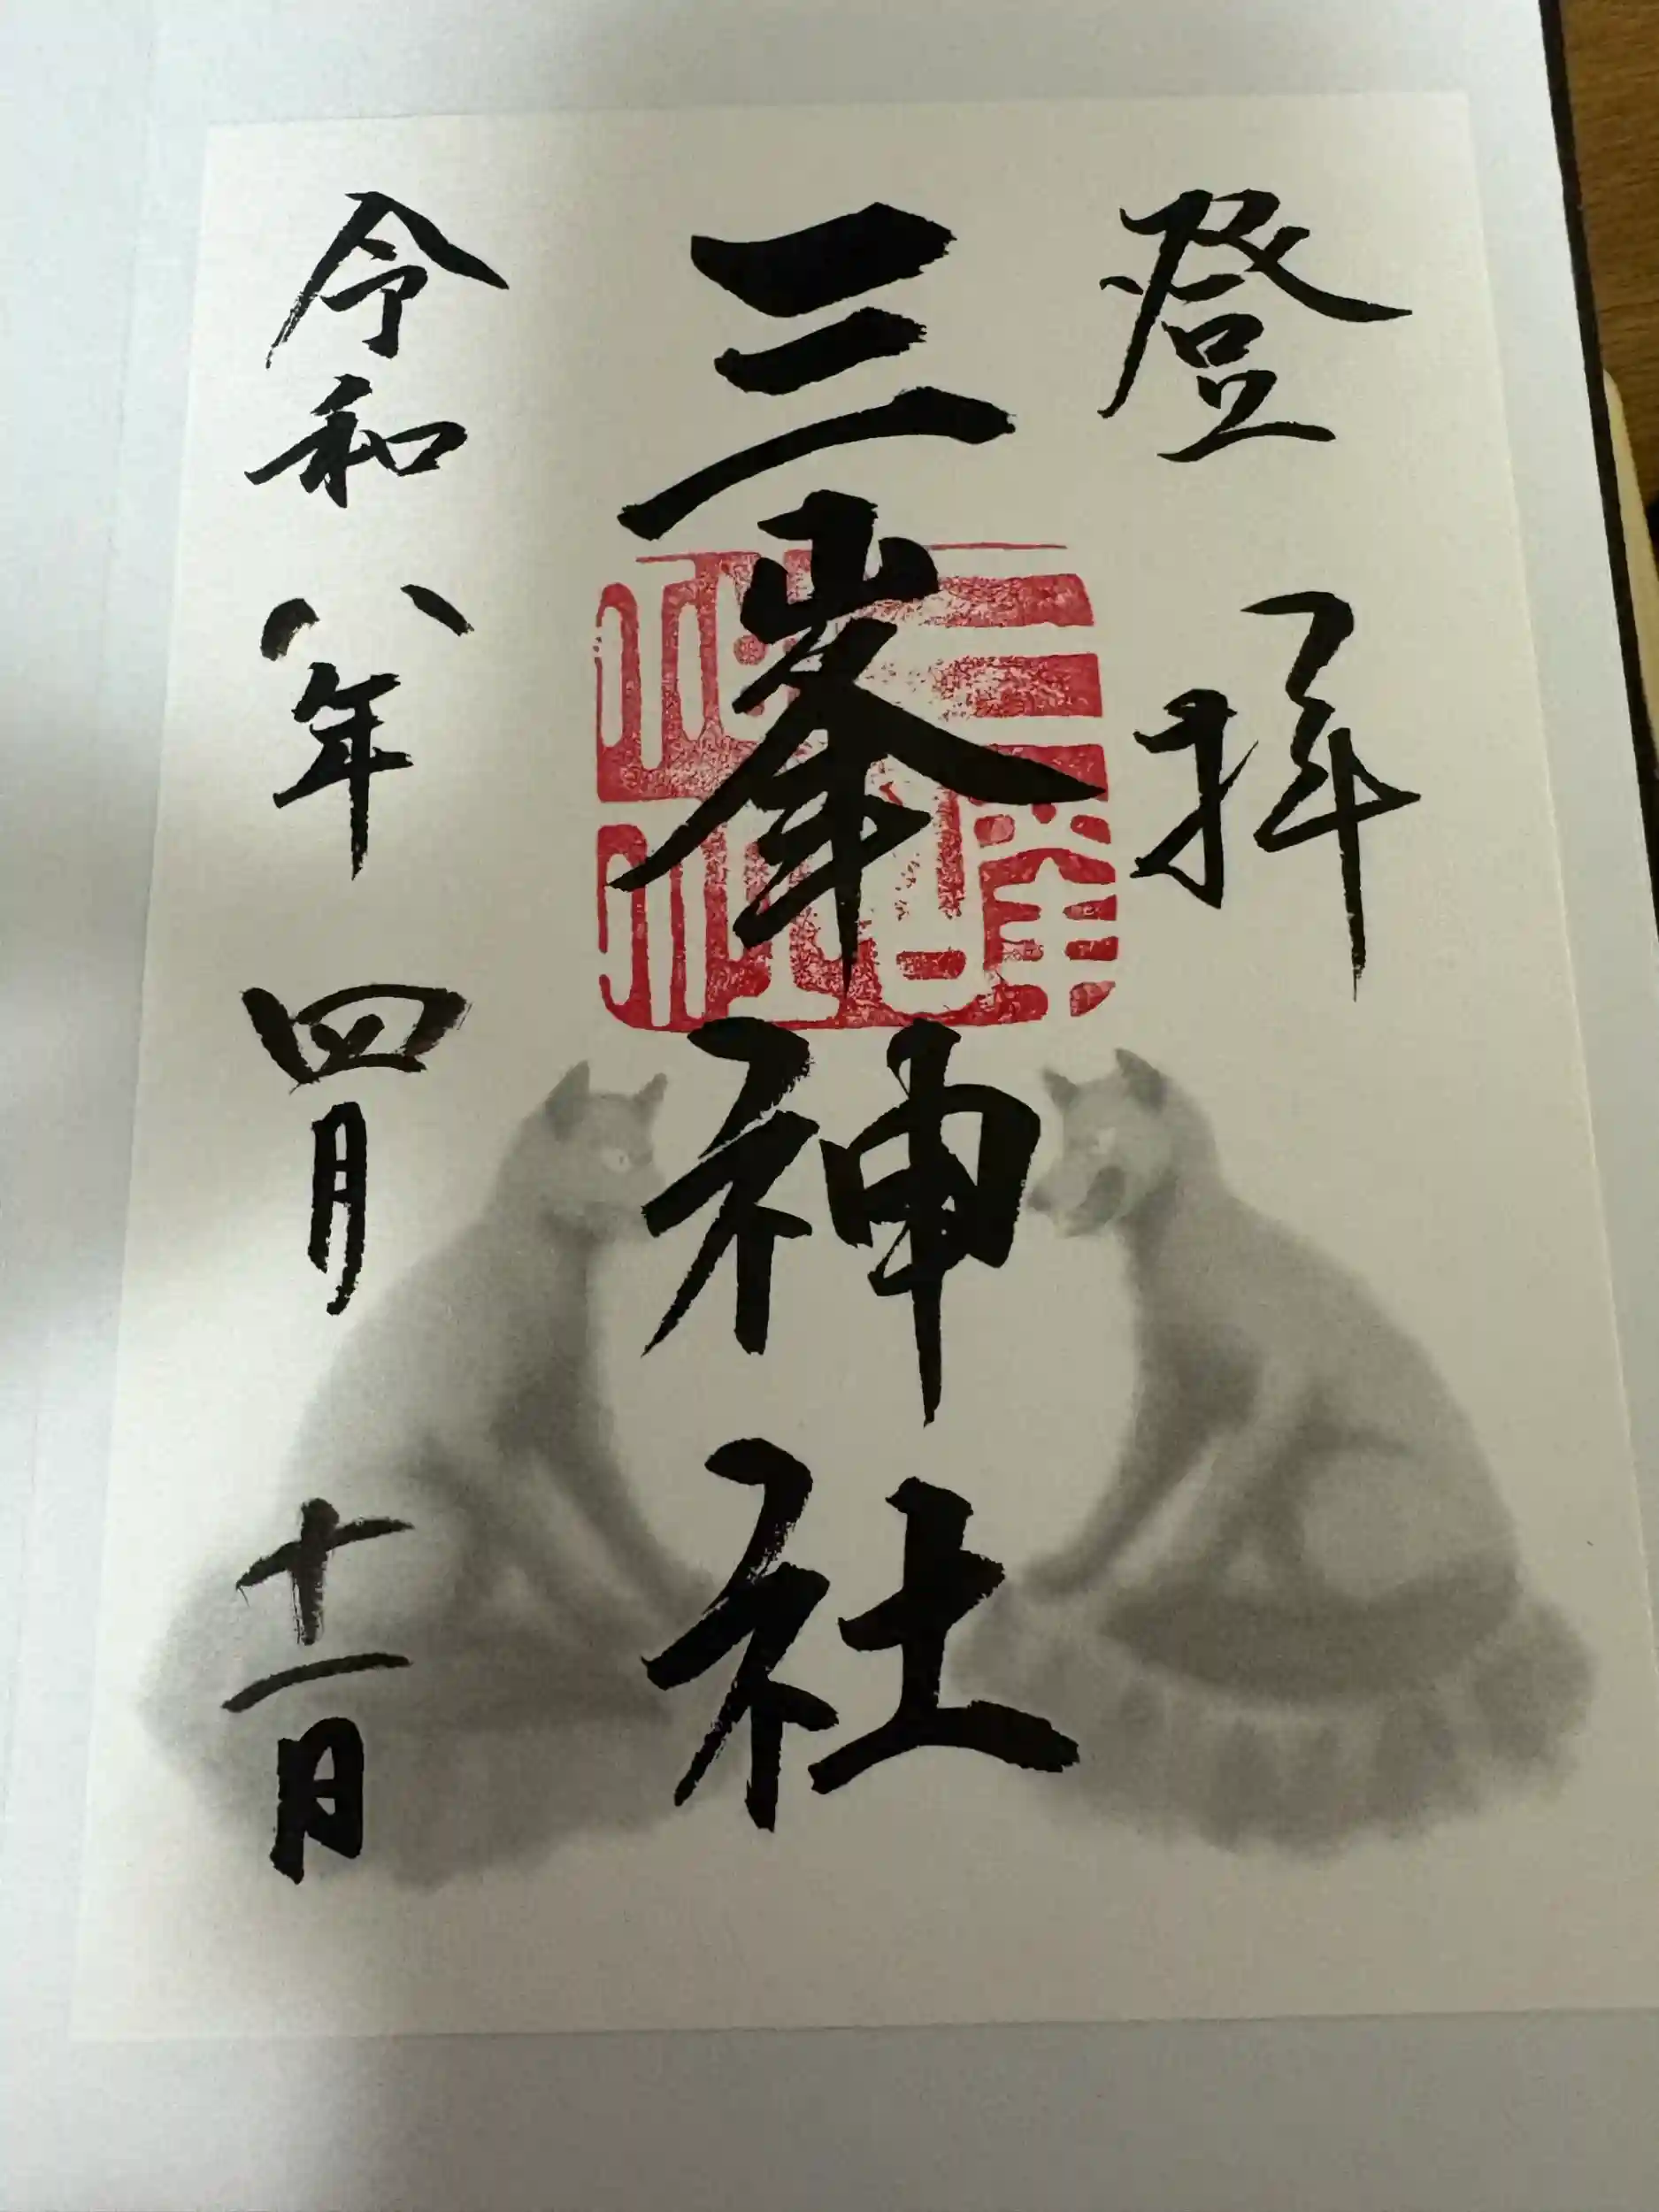 登拝
三峯神社
令和八年四月十一日